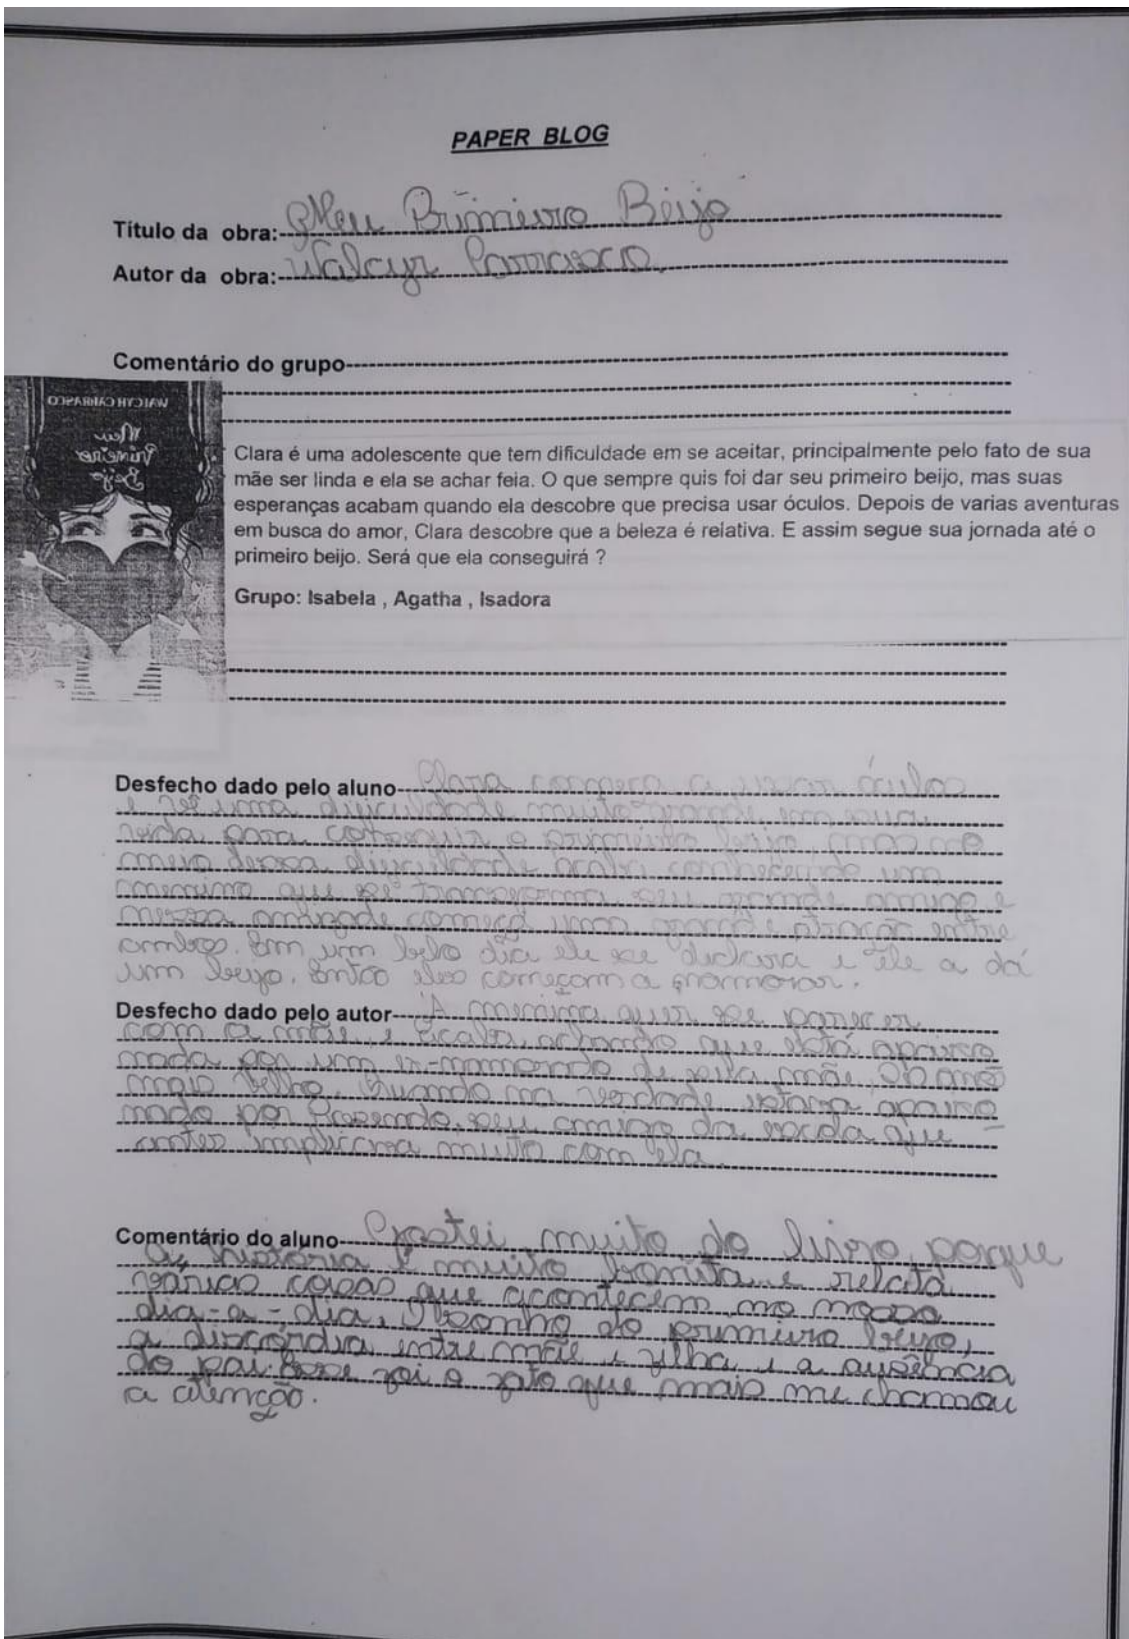 PAPER BLOG
Título da obra: Meu Primeiro Beijo
Autor da obra: Walcyr Carrasco.
Comentário do grupo
WALCYR CARRASCO
Meu
Primeiro
Beijo
Clara é uma adolescente que tem dificuldade em se aceitar, principalmente pelo fato de sua
mãe ser linda e ela se achar feia. O que sempre quis foi dar seu primeiro beijo, mas suas
esperanças acabam quando ela descobre que precisa usar óculos. Depois de varias aventuras
em busca do amor, Clara descobre que a beleza é relativa. E assim segue sua jornada até o
primeiro beijo. Será que ela conseguirá ?
Grupo: Isabela , Agatha , Isadora
Desfecho dado pelo aluno Clara começa a usar óculos
e vê uma dificuldade muito grande em sua
vida para conseguir o primeiro beijo, mas no
meio dessa dificuldade acaba conhecendo um
menino que se transforma seu grande amigo e
nessa amizade começa uma grande atração entre
ambos. Em um belo dia ele se declara e ele a dá
um beijo. Então eles começam a namorar.
Desfecho dado pelo autor A menina quer se parecer
com a mãe, e acaba achando que está apaixo
nada por um ex-namorado de sua mãe, 20 anos
mais velho. Quando na verdade estava apaixo
nada por seu amigo da escola que
antes implicava muito com ela.
Comentário do aluno Gostei muito do livro porque
a história é muito bonita e relata
várias coisas que acontecem no nosso
dia-a-dia. O sonho do primeiro beijo,
a discórdia entre mãe e filha e a ausência
do pai. Esse foi o fato que mais me chamou
a atenção.